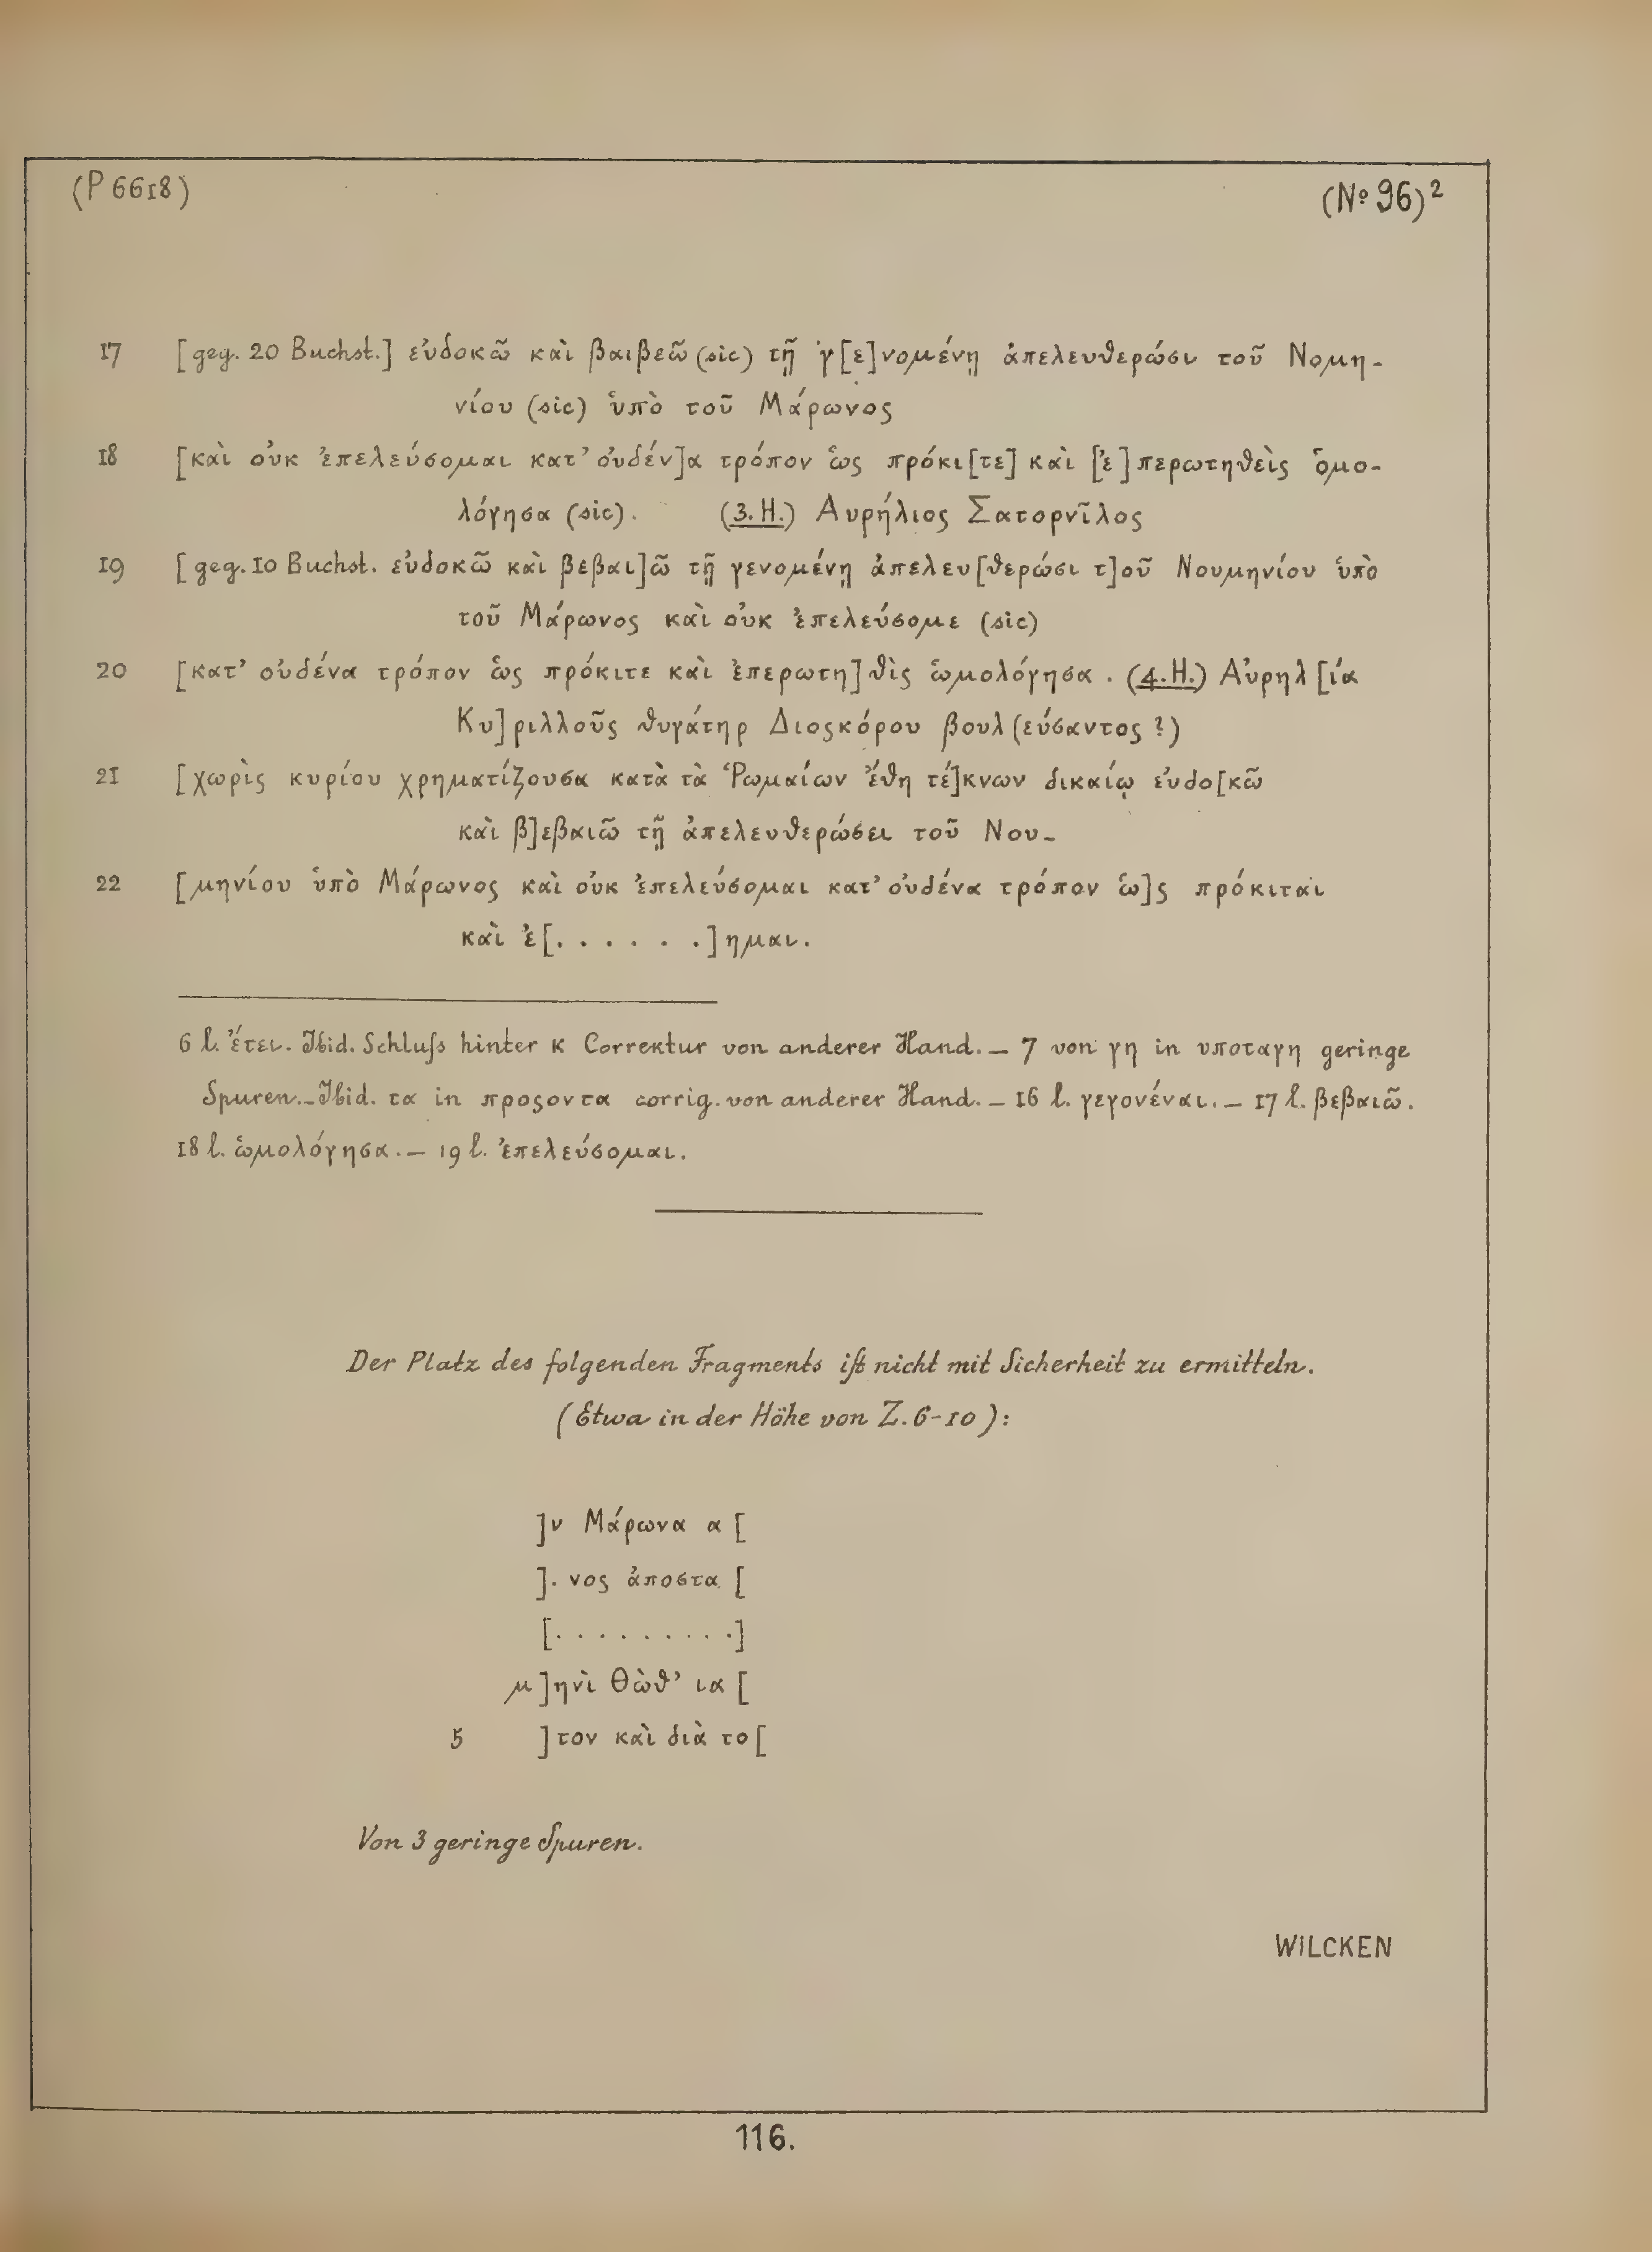 (P 6618) (No 96)²
17 [geg. 20 Buchst.] εὐδοκῶ καὶ βαιβεῶ (sic) τῇ γ[ε]νομένῃ ἀπελευθερώσι τοῦ Νομη-
νίου (sic) ὑπὸ τοῦ Μάρωνος
18 [καὶ οὐκ ἐπελεύσομαι κατ’ οὐδέν]α τρόπον ὡς πρόκι[τε] καὶ [ἐ]περωτηθεὶς ὁμο-
λόγησα (sic). (3. H.) Αυρήλιος Σατορνῖλος
19 [geg. 10 Buchst. εὐδοκῶ καὶ βεβαι]ῶ τῇ γενομένῃ ἀπελευ[θερώσι τ]οῦ Νουμηνίου ὑπὸ
τοῦ Μάρωνος καὶ οὐκ ἐπελεύσομε (sic)
20 [κατ’ οὐδένα τρόπον ὡς πρόκιτε καὶ ἐπερωτη]θὶς ὡμολόγησα. (4. H.) Αὐρηλ[ία
Κυ]ριλλοῦς θυγάτηρ Διοςκόρου βουλ(εύσαντος?)
21 [χωρὶς κυρίου χρηματίζουσα κατὰ τὰ Ῥωμαίων ἔθη τέ]κνων δικαίῳ εὐδο[κῶ
καὶ β]εβαιῶ τῇ ἀπελευθερώσει τοῦ Νου-
22 [μηνίου ὑπὸ Μάρωνος καὶ οὐκ ἐπελεύσομαι κατ’ οὐδένα τρόπον ὡ]ς πρόκιται
καὶ ἐ[. . . . . .]ημαι.
6 l. ἔτει. Ibid. Schluſs hinter κ Correktur von anderer Hand. — 7 von γη in υποταγη geringe
Spuren. — Ibid. τα in προςοντα corrig. von anderer Hand. — 16 l. γεγονέναι. — 17 l. βεβαιῶ.
18 l. ὡμολόγησα. — 19 l. ἐπελεύσομαι.
Der Platz des folgenden Fragments iſt nicht mit Sicherheit zu ermitteln.
(Etwa in der Höhe von Z. 6-10):
]ν Μάρωνα α[
]. νος ἀποστα[
[. . . . . . . . .]
μ]ηνὶ Θὼθ’ ια[
5 ]τον καὶ διὰ το[
Von 3 geringe Spuren.
WILCKEN
116.